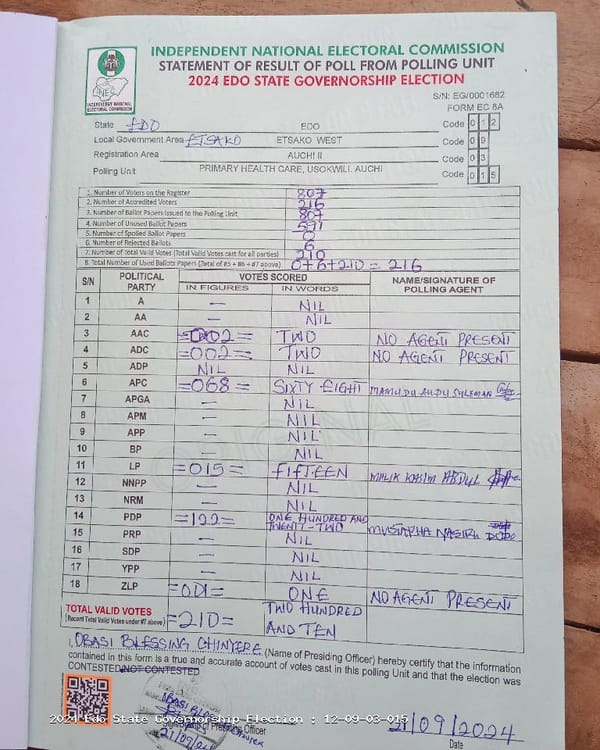 INDEPENDENT NATIONAL ELECTORAL COMMISSION
STATEMENT OF RESULT OF POLL FROM POLLING UNIT
2024 EDO STATE GOVERNORSHIP ELECTION
INEC
INDEPENDENT NATIONAL ELECTORAL COMMISSION
S/N: EG/0001682
FORM EC 8A
State EDO EDO Code 0 1 2
Local Government Area ETSAKO ETSAKO WEST Code 0 9
Registration Area AUCHI II Code 0 3
Polling Unit PRIMARY HEALTH CARE, USOKWILI, AUCHI Code 0 1 5
1. Number of Voters on the Register 807
2. Number of Accredited Voters 216
3. Number of Ballot Papers Issued to the Polling Unit 807
4. Number of Unused Ballot Papers 591
5. Number of Spoiled Ballot Papers 0
6. Number of Rejected Ballots 6
7. Number of Total Valid Votes (Total Valid Votes cast for all parties) 210
8. Total Number of Used Ballots Papers (Total of #5 + #6 + #7 above) 0+6+210 = 216
S/N POLITICAL PARTY VOTES SCORED NAME/SIGNATURE OF POLLING AGENT
IN FIGURES IN WORDS
1 A — NIL
2 AA — NIL
3 AAC =002= TWO NO AGENT PRESENT
4 ADC =002= TWO NO AGENT PRESENT
5 ADP NIL NIL
6 APC =068= SIXTY EIGHT MAMUDU AUDU SULEMAN
7 APGA — NIL
8 APM — NIL
9 APP — NIL
10 BP — NIL
11 LP =015= FIFTEEN MALIK KASIM ABDUL
12 NNPP — NIL
13 NRM — NIL
14 PDP =122= ONE HUNDRED AND TWENTY-TWO MUSTAPHA NASIRU
15 PRP — NIL
16 SDP — NIL
17 YPP — NIL
18 ZLP =001= ONE NO AGENT PRESENT
TOTAL VALID VOTES
(Record Total Valid Votes under #7 above) =210= TWO HUNDRED AND TEN
I, OBASI BLESSING CHINYERE (Name of Presiding Officer) hereby certify that the information
contained in this form is a true and accurate account of votes cast in this polling Unit and that the election was
CONTESTED/NOT CONTESTED
Presiding Officer
21/09/2024
Date
2024 Edo State Governorship Election : 12-09-03-015